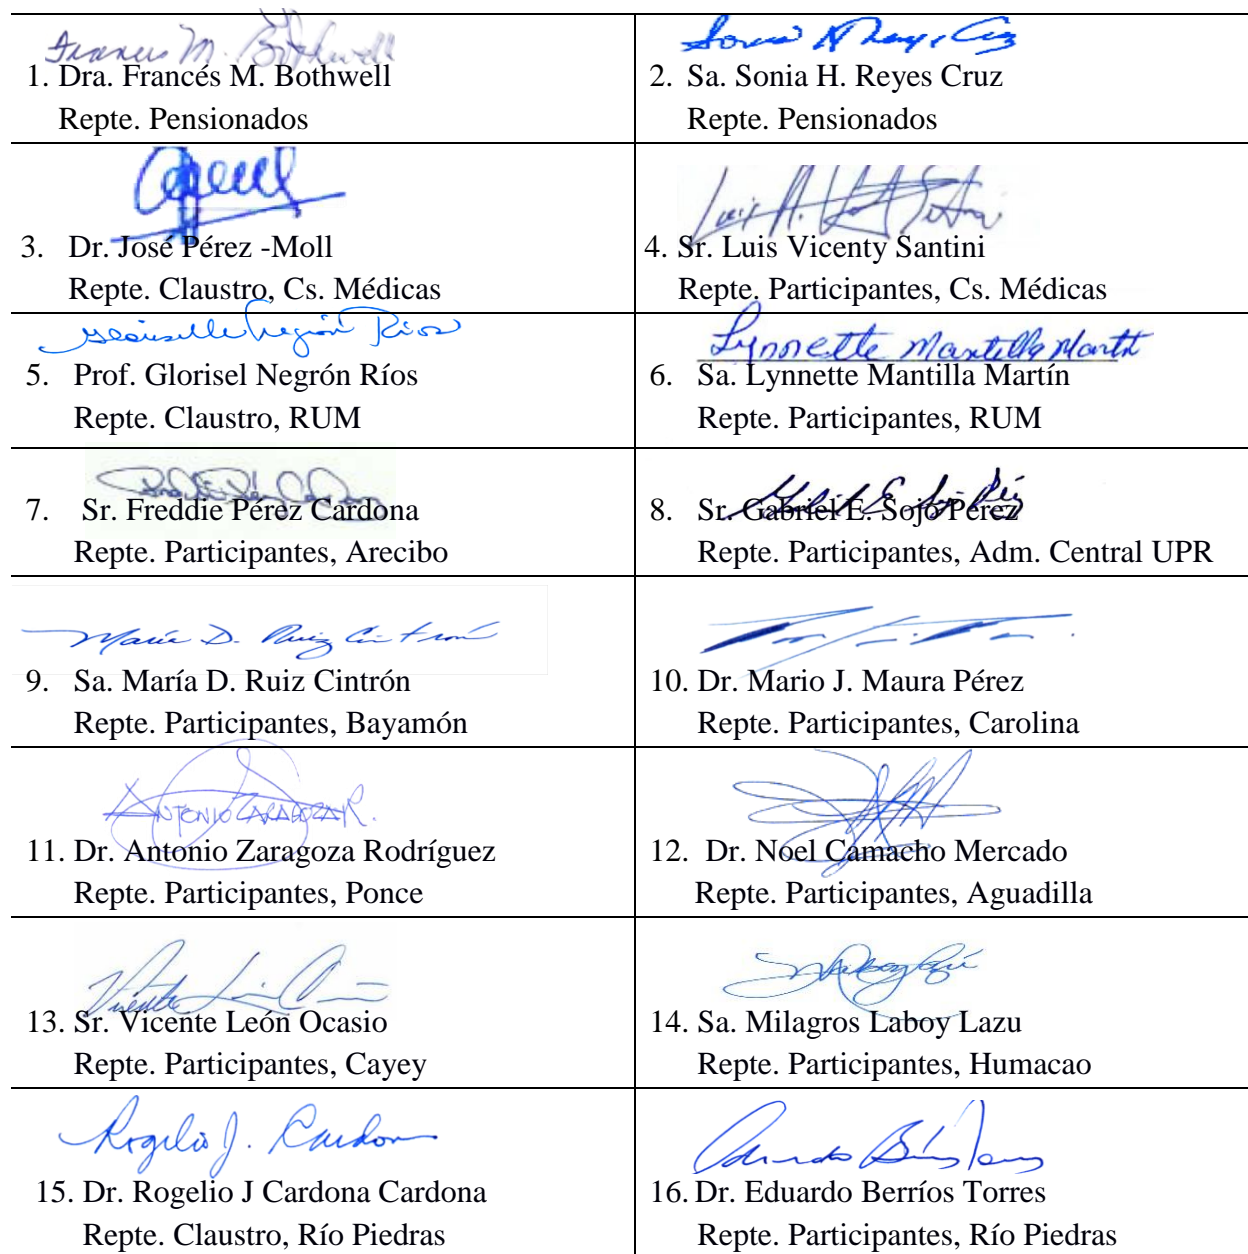 Frances M. Bothwell
1. Dra. Francés M. Bothwell
Repte. Pensionados
2. Sa. Sonia H. Reyes Cruz
Repte. Pensionados
3. Dr. José Pérez -Moll
Repte. Claustro, Cs. Médicas
4. Sr. Luis Vicenty Santini
Repte. Participantes, Cs. Médicas
Negrón Ríos
5. Prof. Glorisel Negrón Ríos
Repte. Claustro, RUM
Lynnette Mantilla Martín
6. Sa. Lynnette Mantilla Martín
Repte. Participantes, RUM
7. Sr. Freddie Pérez Cardona
Repte. Participantes, Arecibo
8. Sr. Gabriel E. Sojo Pérez
Repte. Participantes, Adm. Central UPR
María D. Ruiz Cintrón
9. Sa. María D. Ruiz Cintrón
Repte. Participantes, Bayamón
10. Dr. Mario J. Maura Pérez
Repte. Participantes, Carolina
ANTONIO ZARAGOZA R.
11. Dr. Antonio Zaragoza Rodríguez
Repte. Participantes, Ponce
12. Dr. Noel Camacho Mercado
Repte. Participantes, Aguadilla
Vicente
13. Sr. Vicente León Ocasio
Repte. Participantes, Cayey
14. Sa. Milagros Laboy Lazu
Repte. Participantes, Humacao
Rogelio J. Cardona
15. Dr. Rogelio J Cardona Cardona
Repte. Claustro, Río Piedras
16. Dr. Eduardo Berríos Torres
Repte. Participantes, Río Piedras